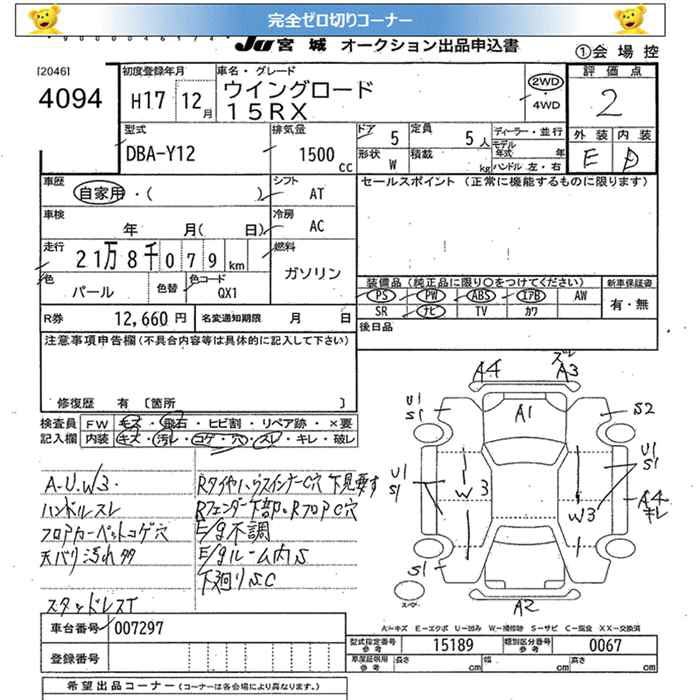 完全ゼロ切りコーナー
JU宮城 オークション出品申込書
①会場控
[2046]
4094
初度登録年月
H17 12月
車名・グレード
ウイングロード
15RX
2WD
・4WD
評価点
2
外装 内装
E D
型式
DBA-Y12
排気量
1500 cc
ドア 5
定員 5人
形状 W
積載 kg
ディーラー・並行
モデル年式 年
ハンドル 左・右
車歴
自家用・( )
シフト AT
セールスポイント (正常に機能するものに限ります)
車検
年 月( 日)
冷房 AC
走行
21万8千079km
燃料
ガソリン
色
パール
色替
色コード
QX1
装備品 (純正品に限り○をつけてください)
新車保証書
PS PW ABS エアB AW
有・無
SR ナビ TV カワ
R券 12,660円
名変通知期限 月 日
後日品
注意事項申告欄(不具合内容等は具体的に記入して下さい)
修復歴 有 〔箇所 〕
検査員記入欄
FW キズ・飛石・ヒビ割・リペア跡・×要
内装 キズ・汚レ・コゲ・穴・スレ・キレ・破レ
A.U.W3.
ハンドルスレ
フロアカーペットコゲ穴
天バリ汚れ多々
スタッドレスT
RタイヤハウスインナーC穴 下見要す
Rフェンダー下部・RフロアC穴
E/g不調
E/gルーム内S
下廻りS.C
A4
ズレ
A3
U1
S1
A1
S2
U1
S1
W3
W3
U1
S1
A4
キレ
S1
S1
A2
スペアー
A=キズ E=エクボ U=凹み W=補修跡 S=サビ C=腐食 XX=交換済
車台番号 007297
登録番号
型式指定番号 参考 15189
類別区分番号 参考 0067
車庫証明用 参考 長さ cm 幅 cm 高さ cm
希望出品コーナー (コーナーは各会場により異なります。)